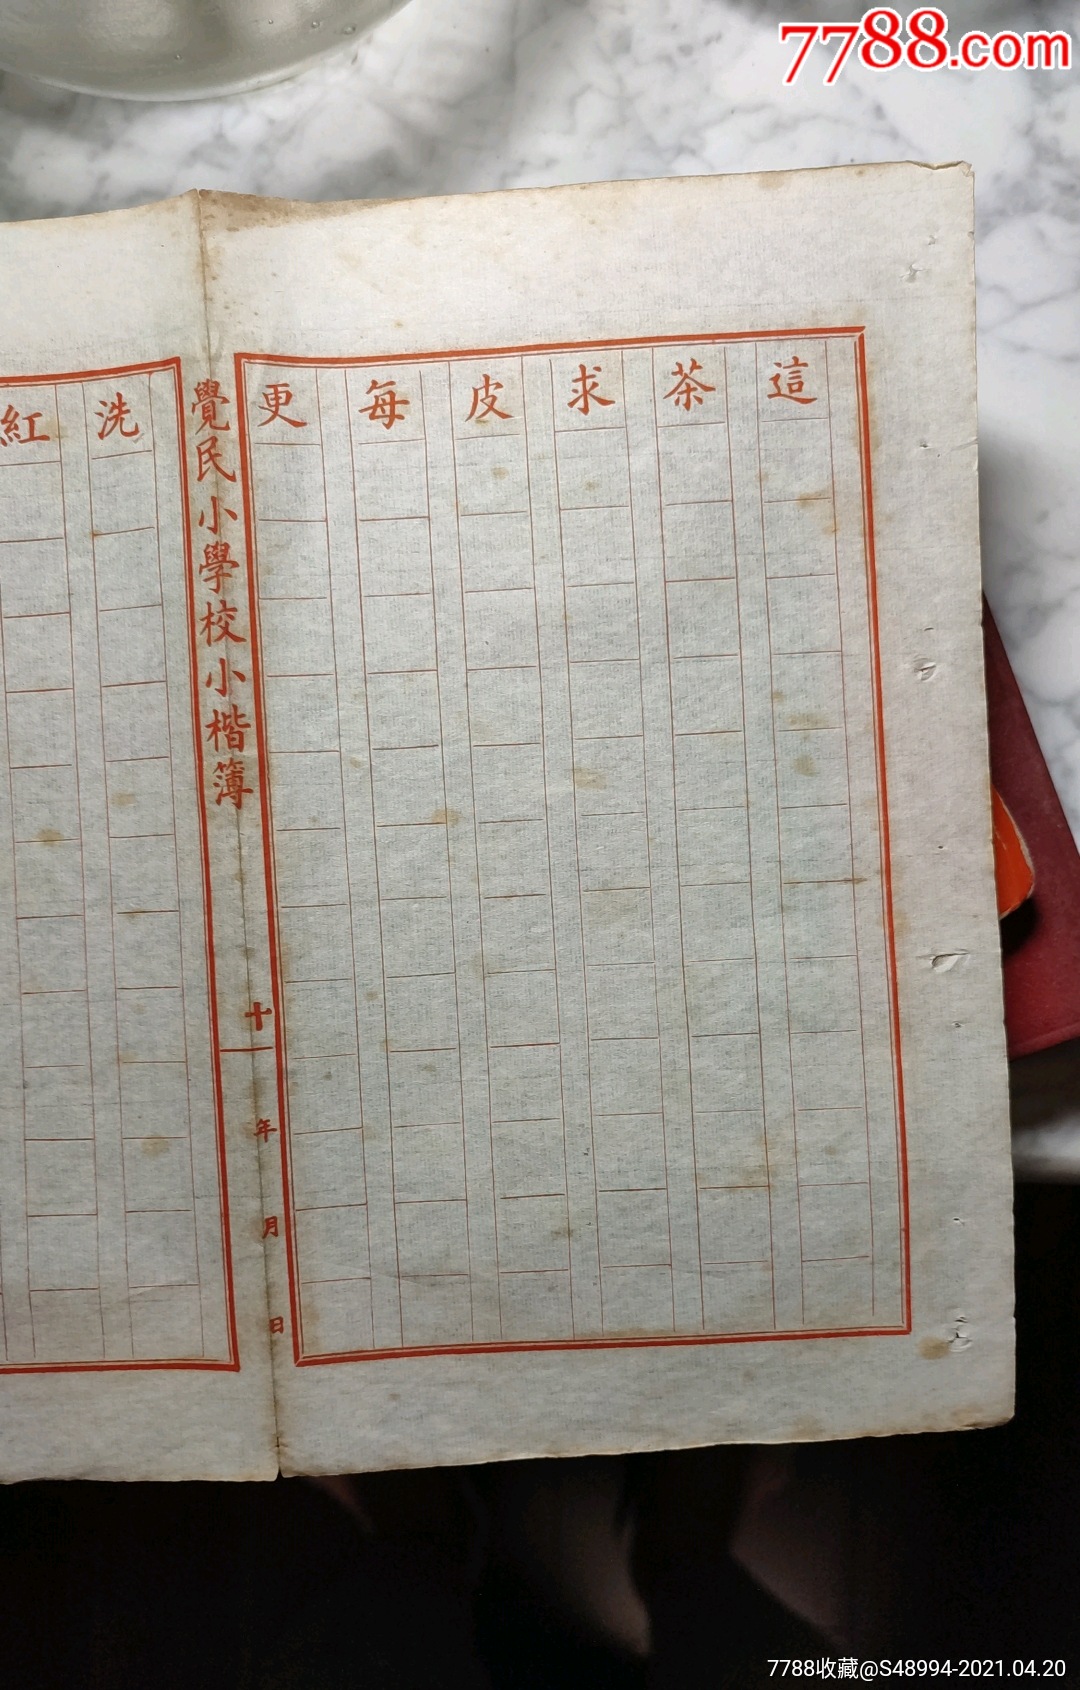 7788.com
這
茶
求
皮
每
更
覺民小學校小楷簿
十
年 月 日
洗
紅
7788收藏@S48994-2021.04.20